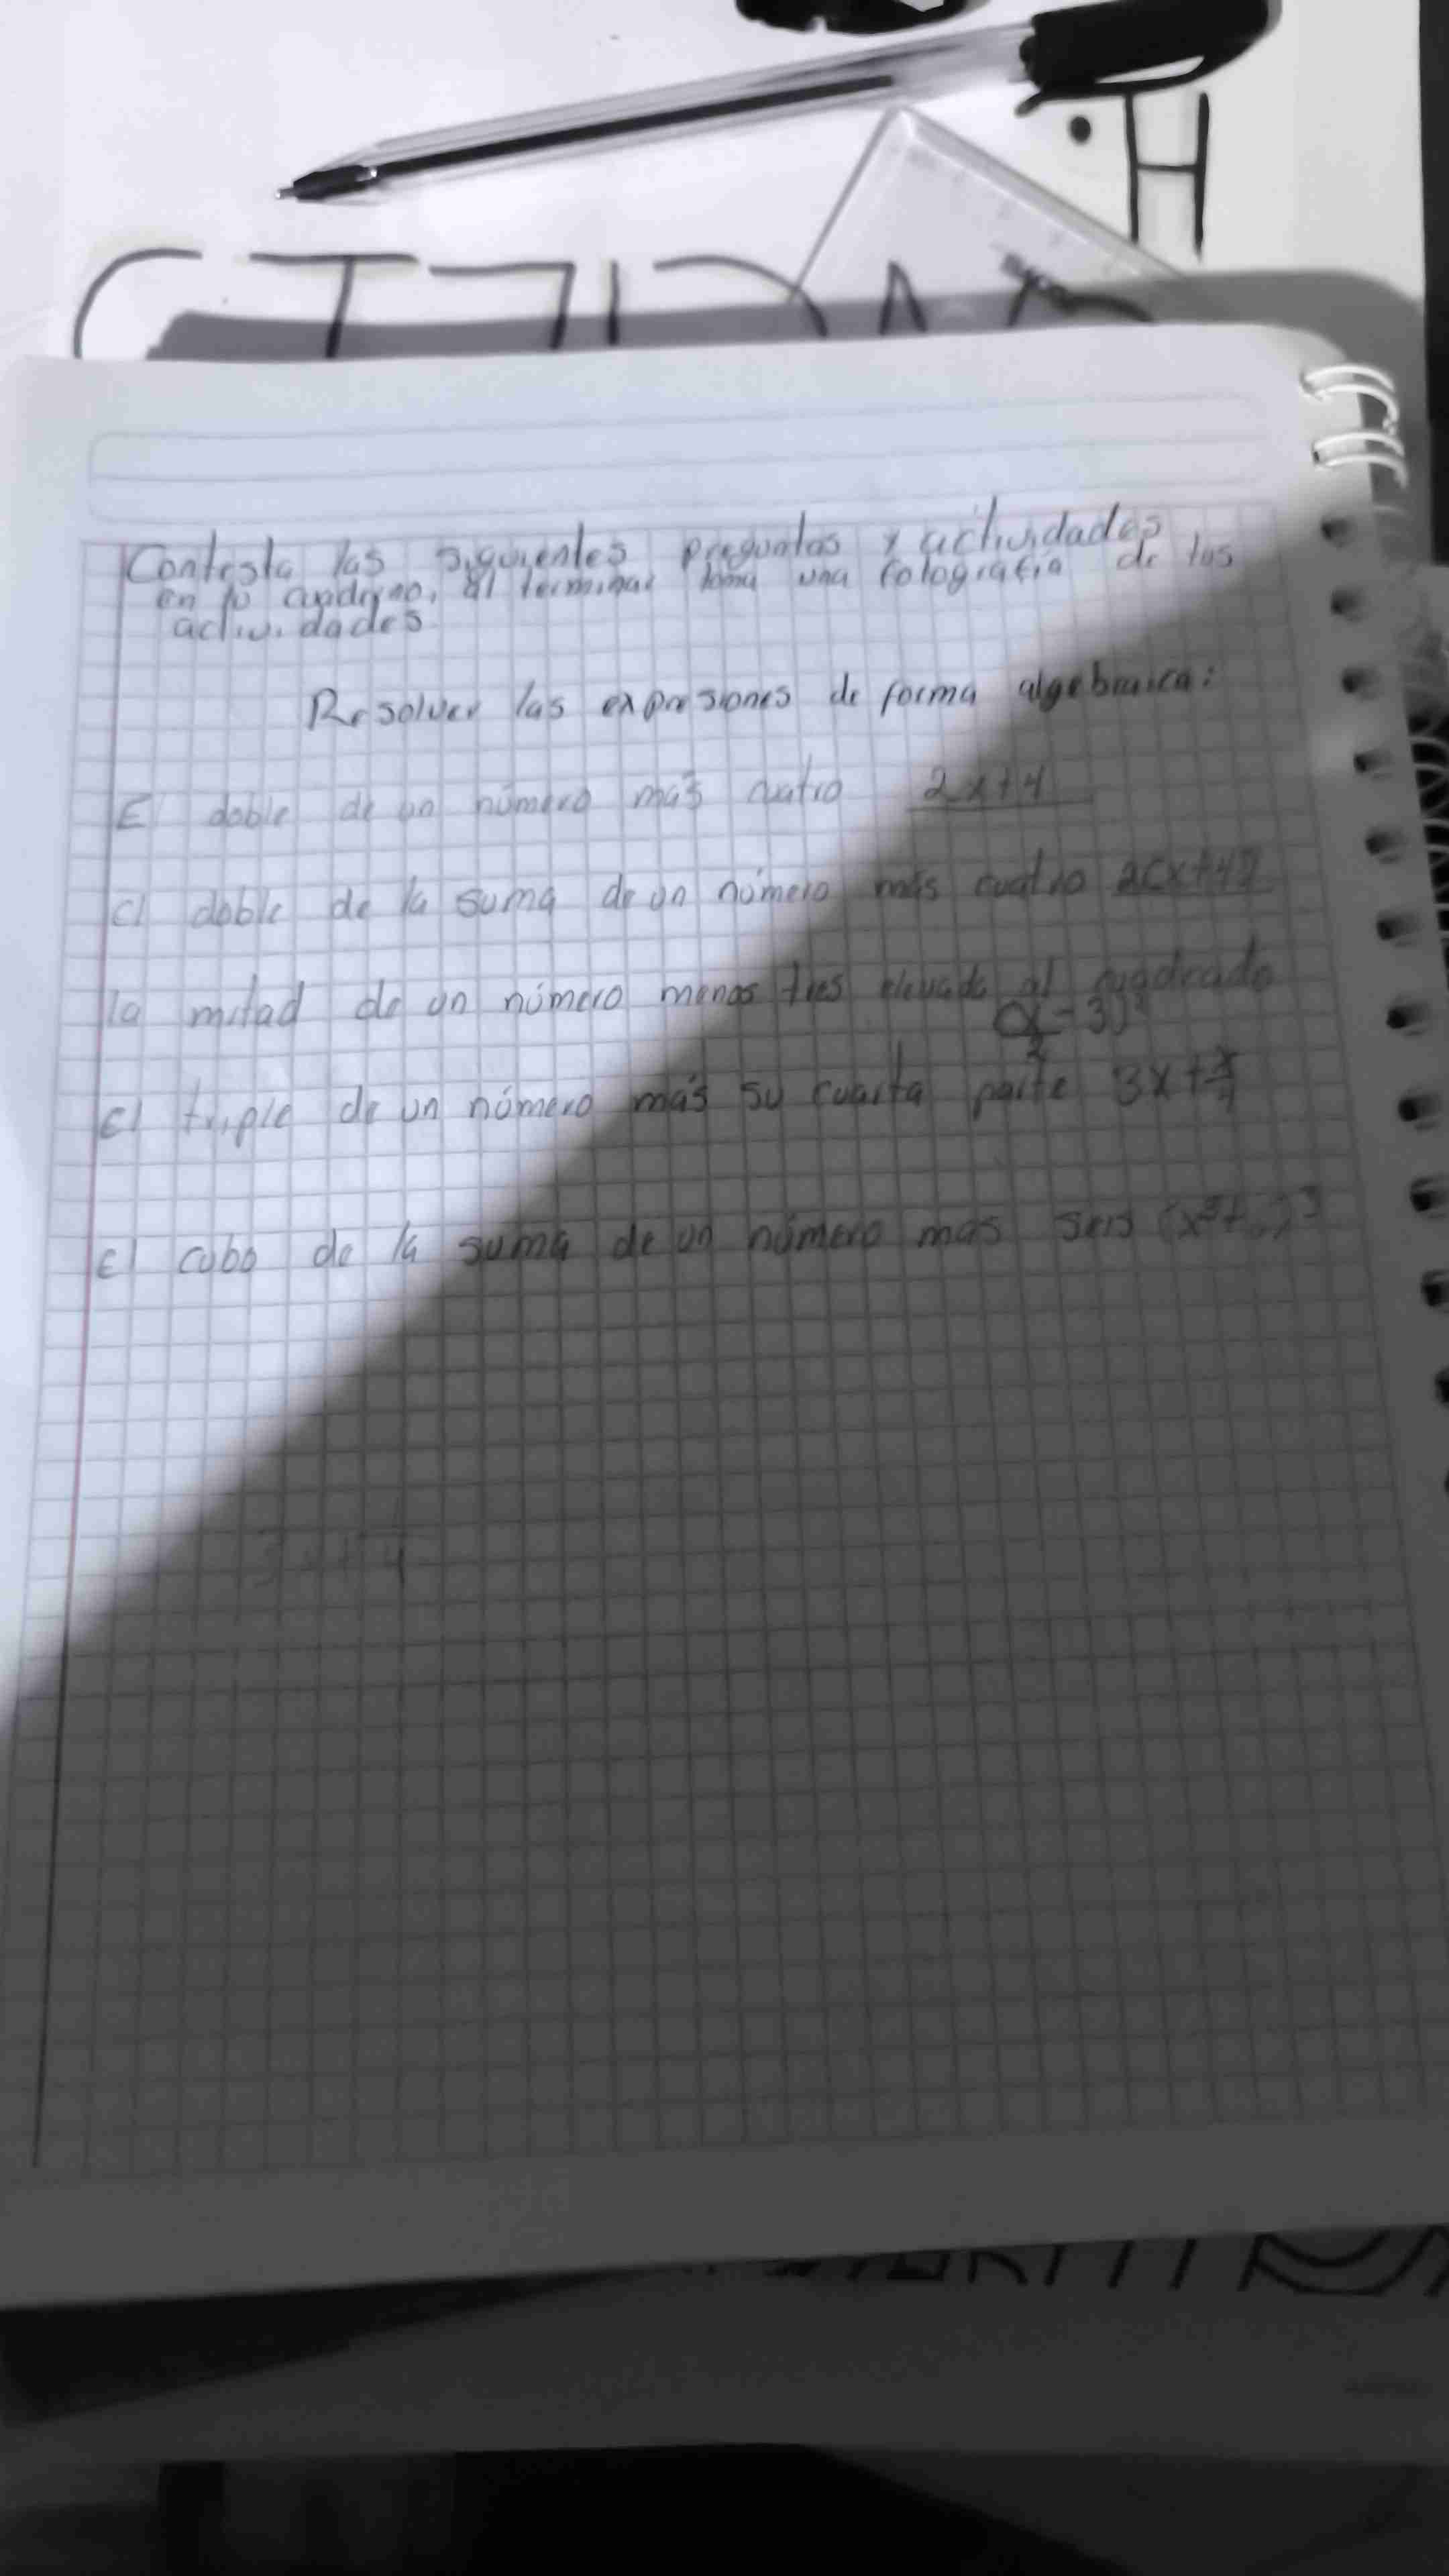 Contesta las siguientes preguntas y actividades
en tu cuaderno, al terminar toma una fotografia de tus
actividades
Resolver las expresiones de forma algebraica:
El doble de un número más cuatro 2x+4
El doble de la suma de un número más cuatro 2(x+4)
la mitad de un número menos tres elevado al cuadrado
(x/2-3)²
El triple de un número más su cuarta parte 3x+x/4
El cubo de la suma de un número mas seis